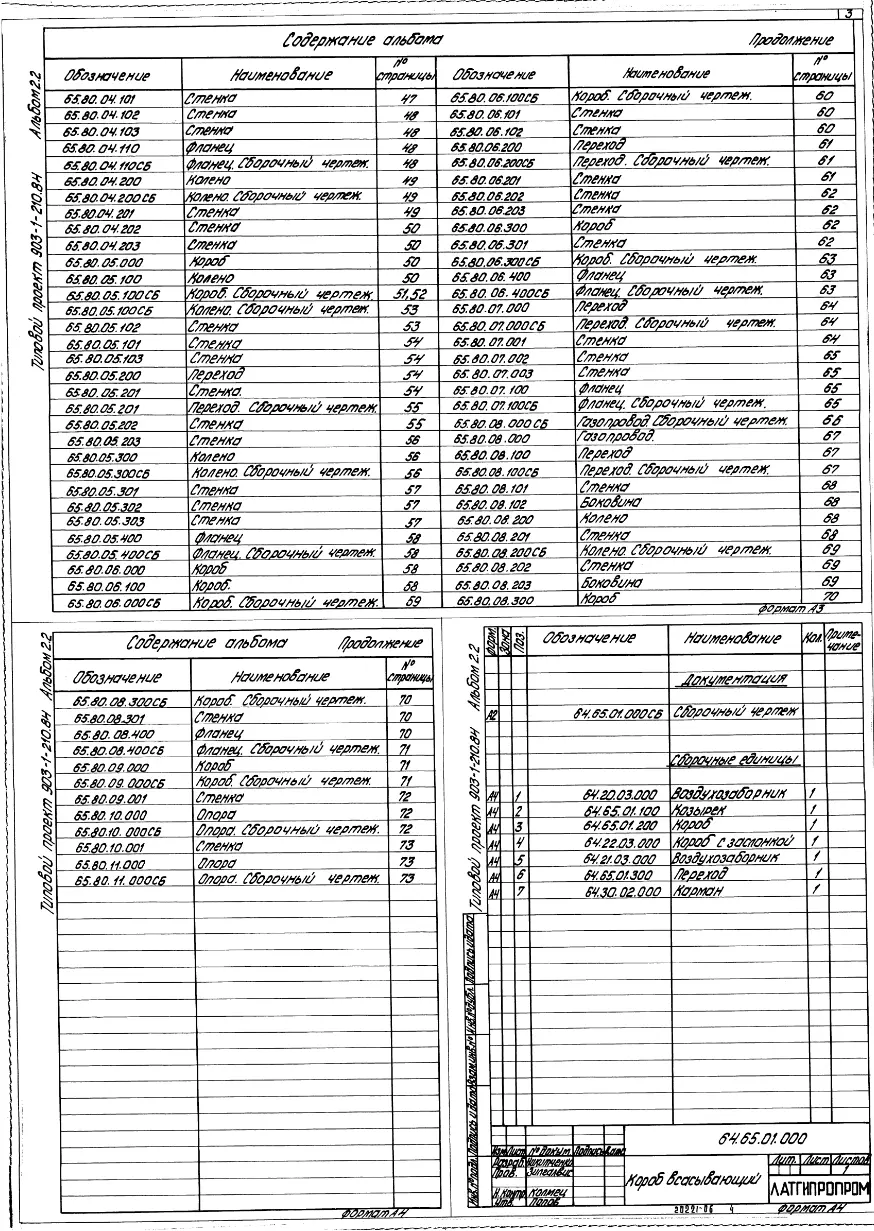 3
Содержание альбома Продолжение
Обозначение Наименование № страницы Обозначение Наименование № страницы
65.80.04.101 Стенка 47 65.80.06.100СБ Короб. Сборочный чертеж. 60
65.80.04.102 Стенка 48 65.80.06.101 Стенка 60
65.80.04.103 Стенка 48 65.80.06.102 Стенка 60
65.80.04.110 Фланец 48 65.80.06.200 Переход 61
65.80.04.110СБ Фланец. Сборочный чертеж. 48 65.80.06.200СБ Переход. Сборочный чертеж. 61
65.80.04.200 Колено 49 65.80.06.201 Стенка 61
65.80.04.200СБ Колено. Сборочный чертеж. 49 65.80.06.202 Стенка 62
65.80.04.201 Стенка 49 65.80.06.203 Стенка 62
65.80.04.202 Стенка 50 65.80.06.300 Короб 62
65.80.04.203 Стенка 50 65.80.06.301 Стенка 62
65.80.05.000 Короб 50 65.80.06.300СБ Короб. Сборочный чертеж. 63
65.80.05.100 Колено 50 65.80.06.400 Фланец 63
65.80.05.100СБ Короб. Сборочный чертеж. 51,52 65.80.06.400СБ Фланец. Сборочный чертеж. 63
65.80.05.100СБ Колено. Сборочный чертеж. 53 65.80.07.000 Переход 64
65.80.05.102 Стенка 53 65.80.07.000СБ Переход. Сборочный чертеж. 64
65.80.05.101 Стенка 54 65.80.07.001 Стенка 64
65.80.05.103 Стенка 54 65.80.07.002 Стенка 65
65.80.05.200 Переход 54 65.80.07.003 Стенка 65
65.80.05.201 Стенка. 54 65.80.07.100 Фланец 65
65.80.05.201 Переход. Сборочный чертеж. 55 65.80.07.100СБ Фланец. Сборочный чертеж. 65
65.80.05.202 Стенка 55 65.80.08.000СБ Газопровод. Сборочный чертеж. 66
65.80.05.203 Стенка 56 65.80.08.000 Газопровод. 67
65.80.05.300 Колено 56 65.80.08.100 Переход 67
65.80.05.300СБ Колено. Сборочный чертеж. 56 65.80.08.100СБ Переход. Сборочный чертеж. 67
65.80.05.301 Стенка 57 65.80.08.101 Стенка 68
65.80.05.302 Стенка 57 65.80.08.102 Боковина 68
65.80.05.303 Стенка 57 65.80.08.200 Колено 68
65.80.05.400 Фланец 58 65.80.08.201 Стенка 68
65.80.05.400СБ Фланец. Сборочный чертеж. 58 65.80.08.200СБ Колено. Сборочный чертеж. 69
65.80.06.000 Короб 58 65.80.08.202 Стенка 69
65.80.06.100 Короб. 58 65.80.08.203 Боковина 69
65.80.06.000СБ Короб. Сборочный чертеж. 59 65.80.08.300 Короб 70
Формат А3
Типовой проект 903-1-210.84 Альбом 2.2
Содержание альбома Продолжение
Обозначение Наименование № страницы
65.80.08.300СБ Короб. Сборочный чертеж. 70
65.80.08.301 Стенка 70
65.80.08.400 Фланец 70
65.80.08.400СБ Фланец. Сборочный чертеж. 71
65.80.09.000 Короб 71
65.80.09.000СБ Короб. Сборочный чертеж. 71
65.80.09.001 Стенка 72
65.80.10.000 Опора 72
65.80.10.000СБ Опора. Сборочный чертеж. 72
65.80.10.001 Стенка 73
65.80.11.000 Опора 73
65.80.11.000СБ Опора. Сборочный чертеж. 73
Типовой проект 903-1-210.84 Альбом 2.2
Формат А4
Форм. Зона Поз. Обозначение Наименование Кол. Приме-чание
Документация
А2 64.65.01.000СБ Сборочный чертеж
Сборочные единицы
А4 1 64.20.03.000 Воздухозаборник 1
А4 2 64.65.01.100 Козырек 1
А4 3 64.65.01.200 Короб 1
А4 4 64.22.03.000 Короб с заслонкой 1
А4 5 64.21.03.000 Воздухозаборник 1
А4 6 64.65.01.300 Переход 1
А4 7 64.30.02.000 Карман 1
Типовой проект 903-1-210.84 Альбом 2.2
Инв.№ подл. Подпись и дата Взам.инв.№ Инв.№ дубл. Подпись и дата
64.65.01.000
Изм Лист № докум. Подпись Дата
Разраб.
Пров.
Н.контр. Колмец
Утв. Попов
Короб всасывающий
Лит. Лист Листов
1
ЛАТГИПРОПРОМ
20221-06 4
Формат А4